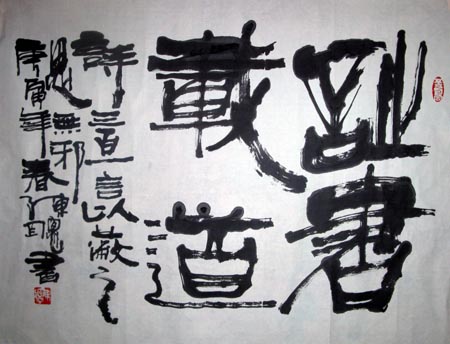 詩書
載道
詩三百一言以蔽之
思無邪
庚寅年春
書